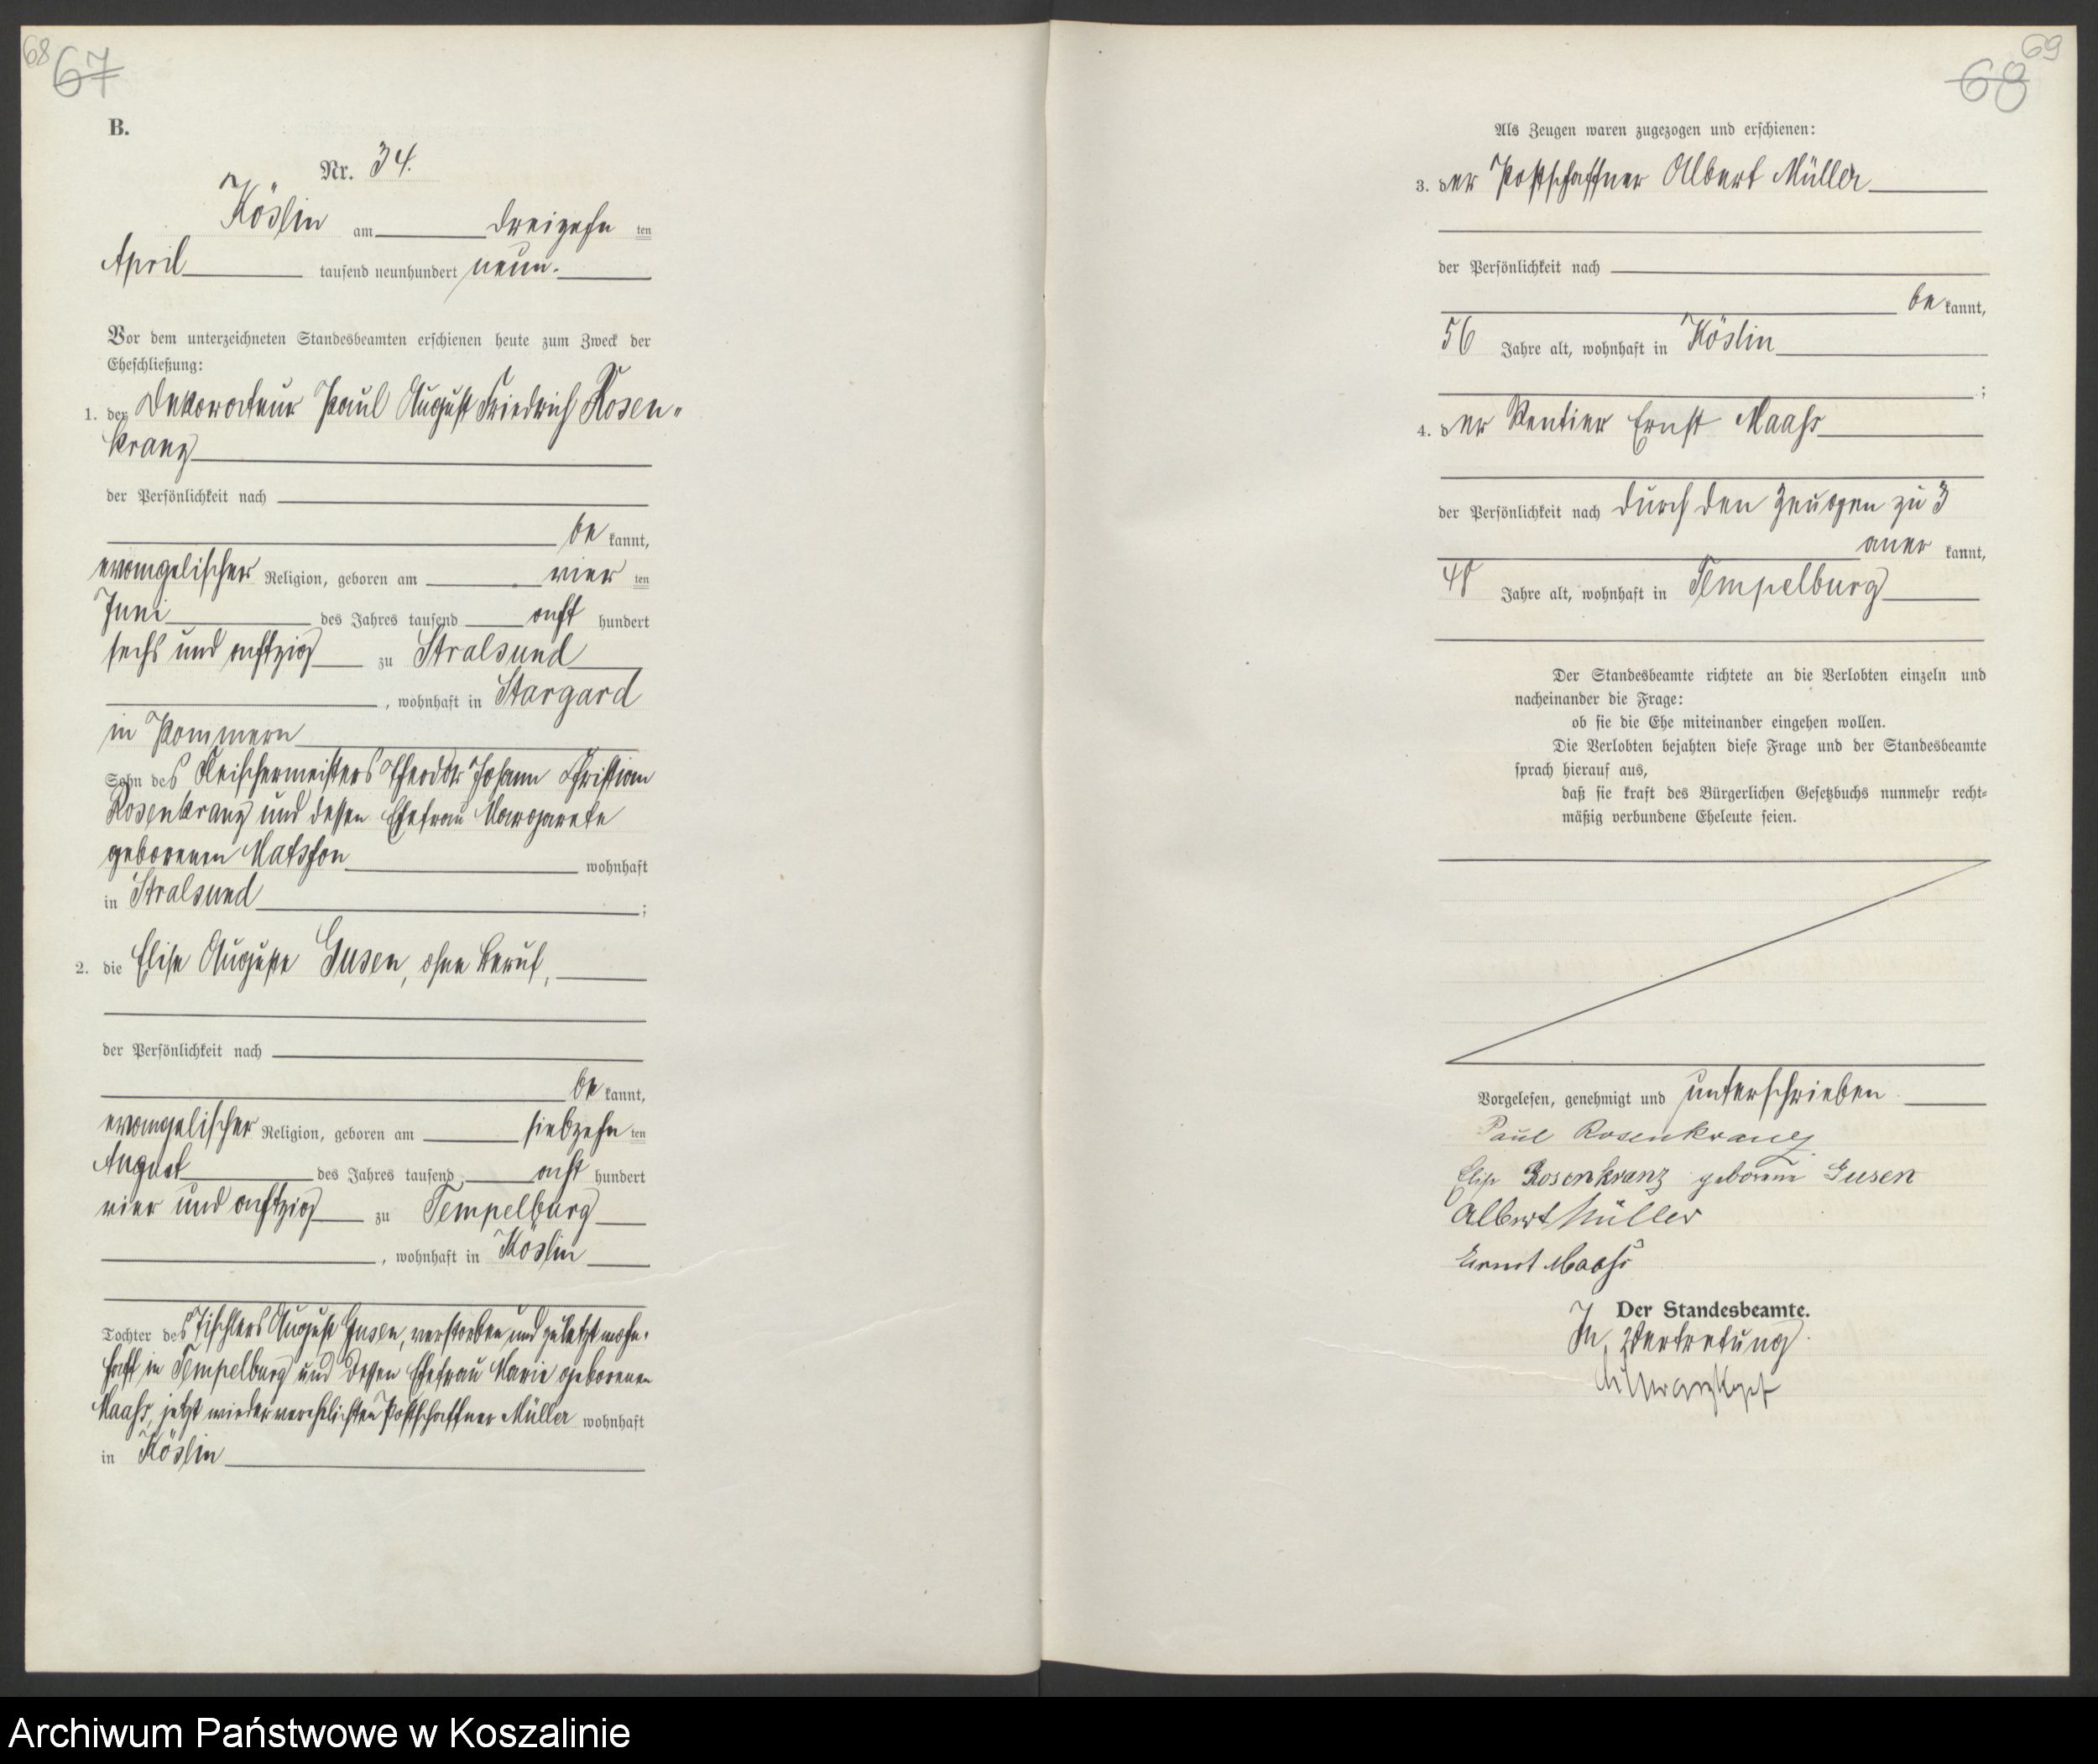 68 67
B.
Nr. 34.
Köslin am dreizehn ten
April tausend neunhundert neun.
Vor dem unterzeichneten Standesbeamten erschienen heute zum Zweck der
Eheschließung:
1. der Dekorateur Paul August Friedrich Rosen-
kranz
der Persönlichkeit nach
be kannt,
evangelischer Religion, geboren am vier ten
Juni des Jahres tausend acht hundert
sechs und achtzig zu Stralsund
, wohnhaft in Stargard
in Pommern
Sohn des Fleischermeisters Theodor Johann Christian
Rosenkranz und dessen Ehefrau Margarete
geborenen Matshon wohnhaft
in Stralsund ;
2. die Elise Auguste Gusen, ohne Beruf,
der Persönlichkeit nach
be kannt,
evangelischer Religion, geboren am siebzehn ten
August des Jahres tausend acht hundert
vier und achtzig zu Tempelburg
, wohnhaft in Köslin
Tochter des Tischlers August Gusen, verstorben und zuletzt wohn-
haft in Tempelburg und dessen Ehefrau Marie geborenen
Maahs, jetzt wiederverehelichten Postschaffner Müller wohnhaft
in Köslin
69 68
Als Zeugen waren zugezogen und erschienen:
3. der Postschaffner Albert Müller
der Persönlichkeit nach
be kannt,
56 Jahre alt, wohnhaft in Köslin
;
4. der Rentier Ernst Maahs
der Persönlichkeit nach durch den Zeugen zu 3
aner kannt,
48 Jahre alt, wohnhaft in Tempelburg
Der Standesbeamte richtete an die Verlobten einzeln und
nacheinander die Frage:
ob sie die Ehe miteinander eingehen wollen.
Die Verlobten bejahten diese Frage und der Standesbeamte
sprach hierauf aus,
daß sie kraft des Bürgerlichen Gesetzbuchs nunmehr recht-
mäßig verbundene Eheleute seien.
Vorgelesen, genehmigt und unterschrieben
Paul Rosenkranz
Elise Rosenkranz geborene Gusen
Albert Müller
Ernst Maahs
Der Standesbeamte.
In Vertretung.
Archiwum Państwowe w Koszalinie